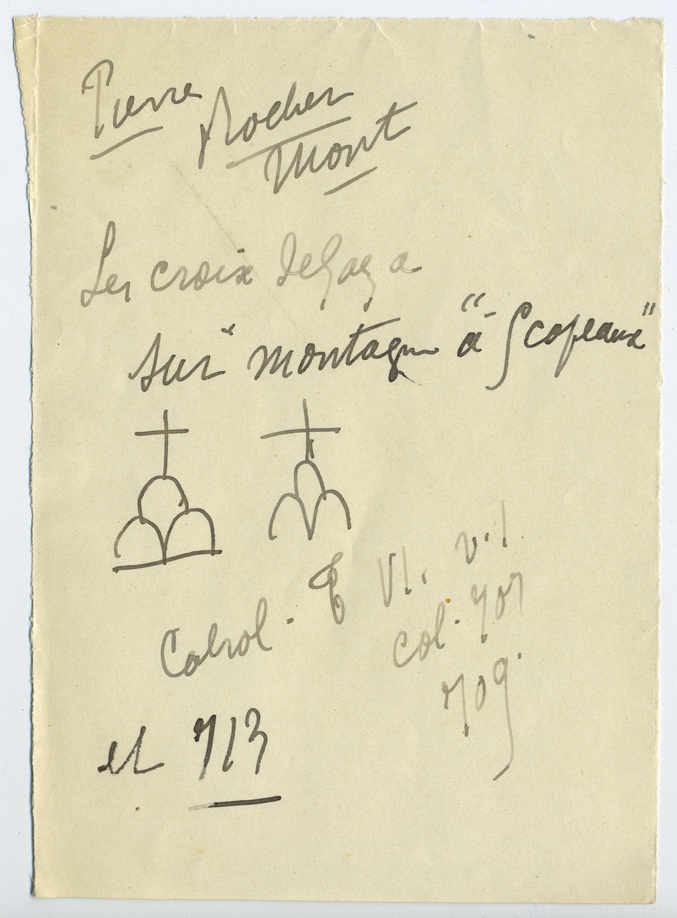 Pierre
Rocher
Mont
Les croix de Gaza
sur "montagne "à Scopeaux"
Cabrol. T VI. v. 1
col. 707
709.
et 713